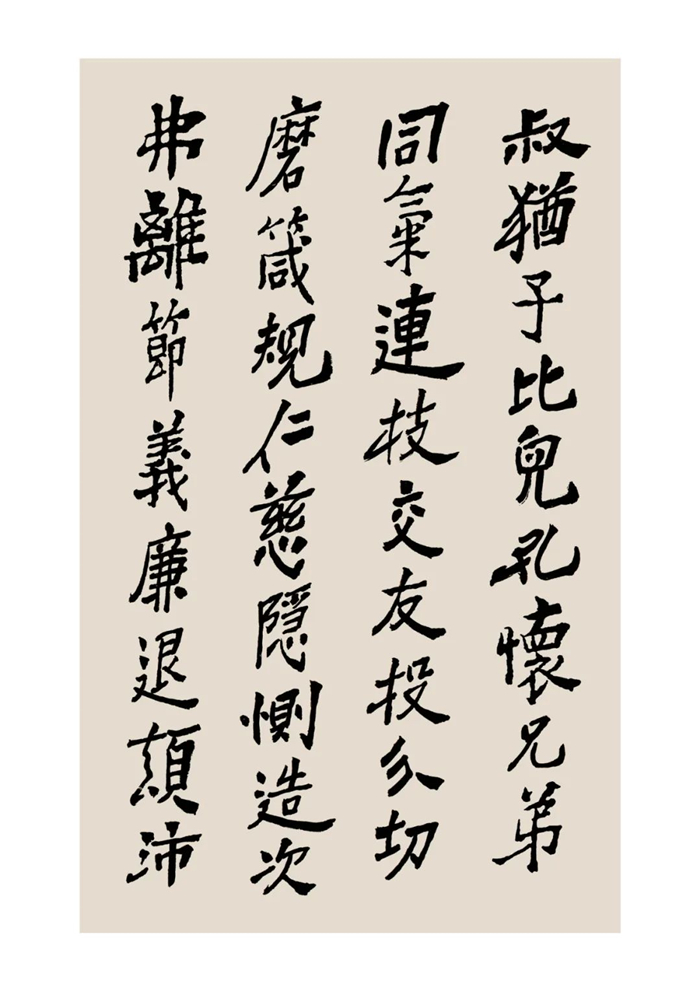 叔猶子比兒孔懷兄弟
同氣連枝交友投分切
磨箴規仁慈隱惻造次
弗離節義廉退顛沛